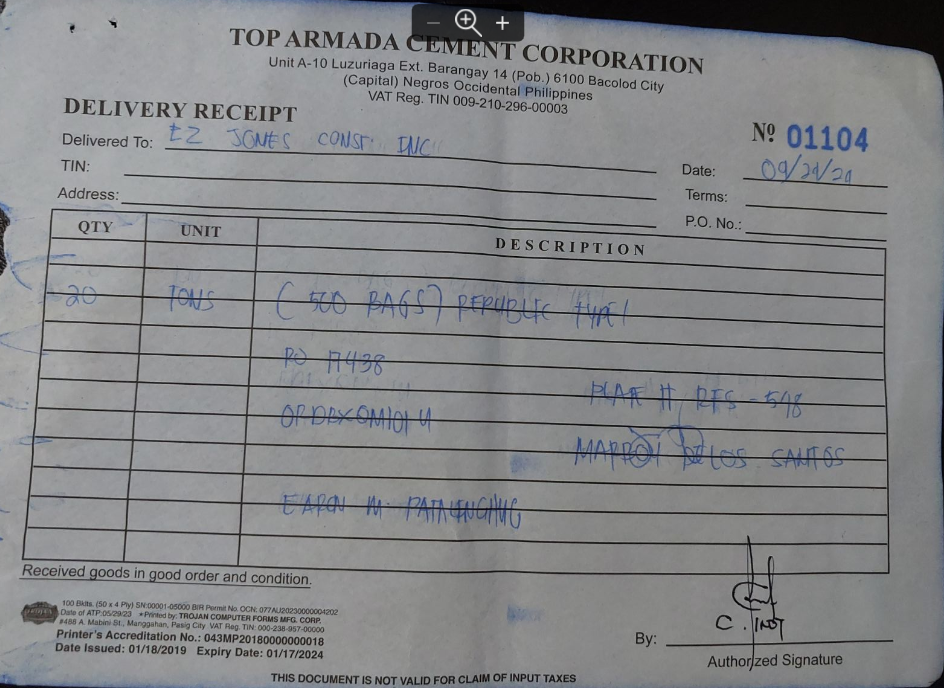 TOP ARMADA CEMENT CORPORATION
Unit A-10 Luzuriaga Ext. Barangay 14 (Pob.) 6100 Bacolod City
(Capital) Negros Occidental Philippines
VAT Reg. TIN 009-210-296-00003
DELIVERY RECEIPT
Nº 01104
Delivered To: EZ JONES CONST. INC
Date: 09/21/21
TIN:
Terms:
Address:
P.O. No.:
QTY UNIT DESCRIPTION
20 TONS (500 BAGS) REPUBLIC TYPE 1
PO 17438
PLATE # RFS-598
DELOS SANTOS
M.
Received goods in good order and condition.
100 Bklts. (50 x 4 Ply) SN:00001-05000 BIR Permit No. OCN: 077AU20230000004202
Date of ATP:05/29/23 • Printed by: TROJAN COMPUTER FORMS MFG. CORP.
#488 A. Mabini St., Manggahan, Pasig City VAT Reg. TIN: 000-236-957-00000
Printer's Accreditation No.: 043MP20180000000018
Date Issued: 01/18/2019 Expiry Date: 01/17/2024
By:
Authorized Signature
THIS DOCUMENT IS NOT VALID FOR CLAIM OF INPUT TAXES